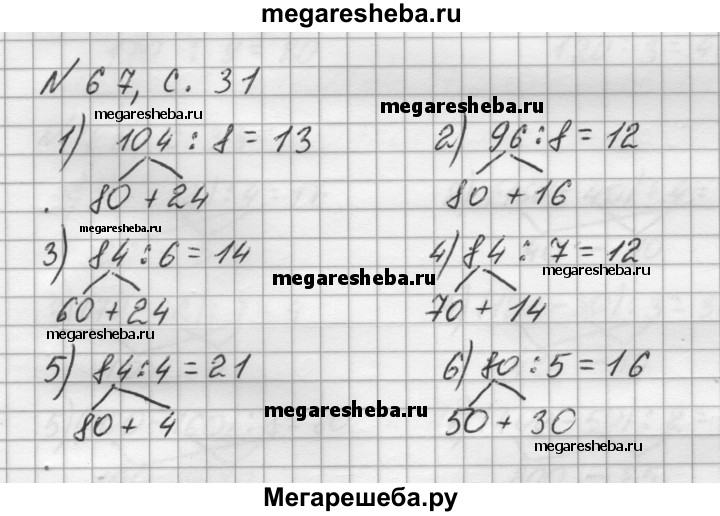 megaresheba.ru
№ 67, с. 31
megaresheba.ru
megaresheba.ru
1) 104 : 8 = 13
2) 96 : 8 = 12
80 + 24
80 + 16
megaresheba.ru
3) 84 : 6 = 14
4) 84 : 7 = 12
megaresheba.ru
megaresheba.ru
60 + 24
70 + 14
megaresheba.ru
5) 84 : 4 = 21
6) 80 : 5 = 16
megaresheba.ru
80 + 4
50 + 30
megaresheba.ru
Мегарешеба.ру